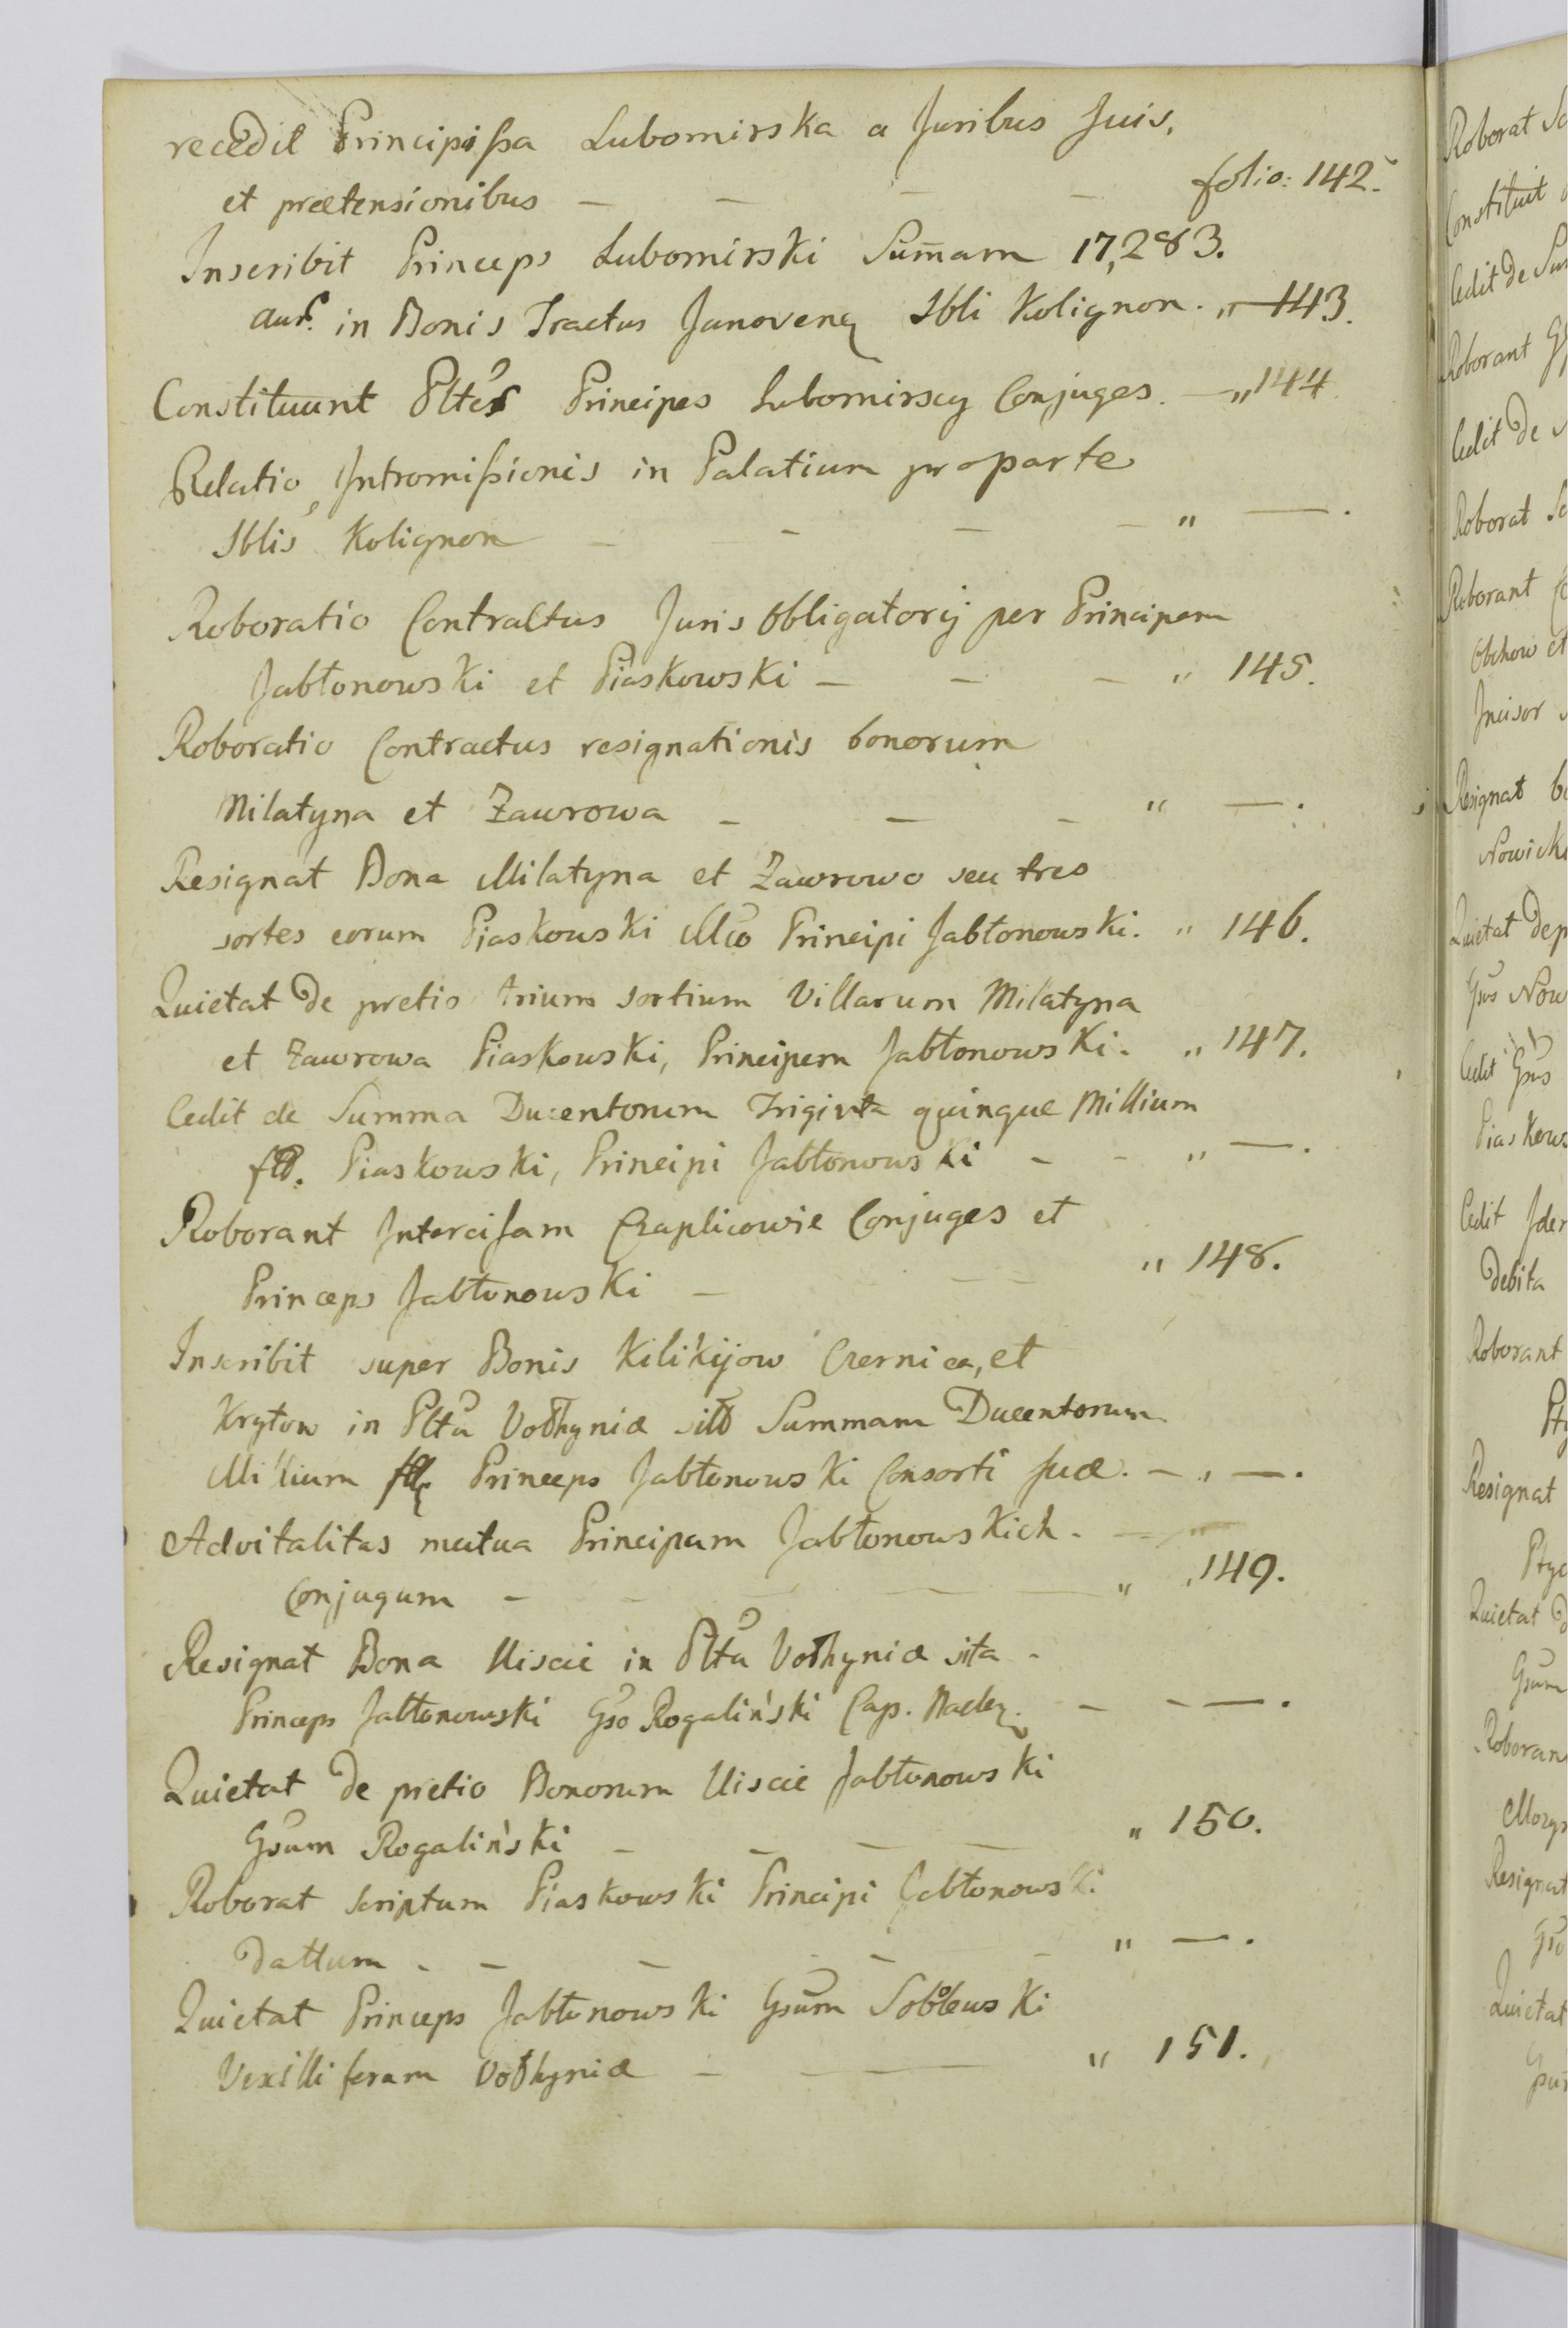 recedit Principissa Lubomirska a Juribus suis,
et prætensionibus — — — — folio: 142.
Inscribit Princeps Lubomirski Sum̅am 17,283.
aur. in Bonis Tractus Janoven Sbli Kolignon. „ — 143.
Constituunt Pltes Principes Lubomirscy Conjuges. — „ 144
Relatio Intromissionis in Palatium pro parte
Sblis Kolignon — — — — „ — .
Roboratio Contractus Juris Obligatorij per Principem
Jabłonowski et Piaskowski — — — „ 145.
Roboratio Contractus resignationis bonorum
Milatyna et Zawrowa — — — „ — .
Resignat Bona Milatyna et Zawrowo seu tres
sortes eorum Piaskowski Mco Principi Jabłonowski. „ 146.
Quietat de pretio trium sortium Villarum Milatyna
et Zawrowa Piaskowski, Principem Jabłonowski. „ 147.
Cedit de Summa Ducentorum Triginta quinque Millium
fl. Piaskowski, Principi Jabłonowski — — „ — .
Roborant Intercisam Czaplicowie Conjuges et
Princeps Jabłonowski — — — „ 148.
Inscribit super Bonis Kilikijow Czernica, et
Kryłow in Pltu Vołhyniæ sit Summam Ducentorum
Millium fl Princeps Jabłonowski Consorti suæ. — „ — .
Advitalitas mutua Principum Jabłonowskich.
Conjugum — — — — „ 149.
Resignat Bona Uiscie in Pltu Vołhyniæ sita -
Princeps Jabłonowski Gso Rogaliński Cap. Nackz. — — — .
Quietat de pretio Bonorum Uiscie Jabłonowski
Gsum Rogaliński — — — — „ 150.
Roborat scriptum Piaskowski Principi Jabłonowski
dattum . — — — — „ — .
Quietat Princeps Jabłonowski Gsum Sobolewski
Vexilliferum Vołhyniæ — — „ 151.
Roborat
Constituit
Cedit de
Roborant
Cedit de
Roborat
Roborant
Obchow et
Incisor
Resignat
Nowicki
Quietat de
Gsus Now
Cedit Gsus
Piaskows
Cedit Idem
Debita
Roborant
Resignat
Quietat
Gsum
Roborant
Resignat
Gso
Quietat